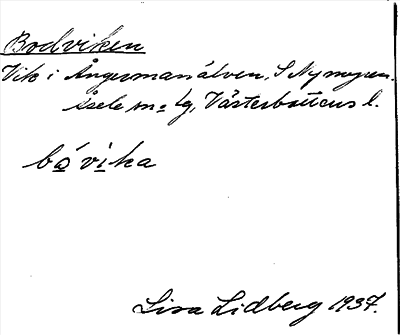 Bodviken
Vik i Ångermanälven, S Nymyren.
Åsele m- lg, Västerbottens l.
bó vika
Lisa Lidberg 1937.